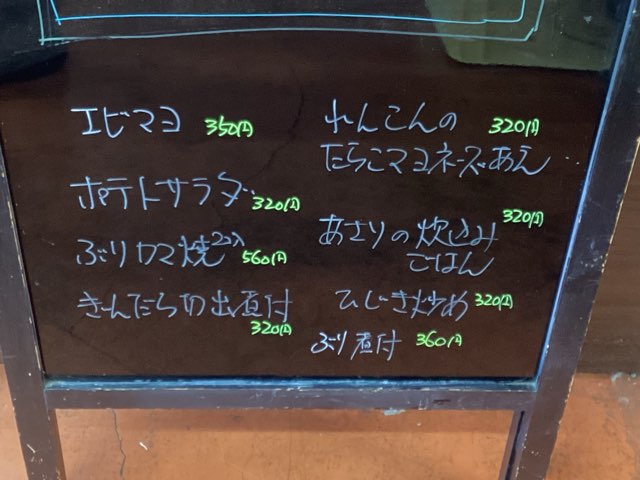 エビマヨ 350円
ポテトサラダ 320円
ぶりカマ焼 2コ入 560円
きんだら切出煮付
320円
れんこんの 320円
たらこマヨネーズあえ
320円
あさりの炊込み
ごはん
ひじき炒め 320円
ぶり煮付 360円